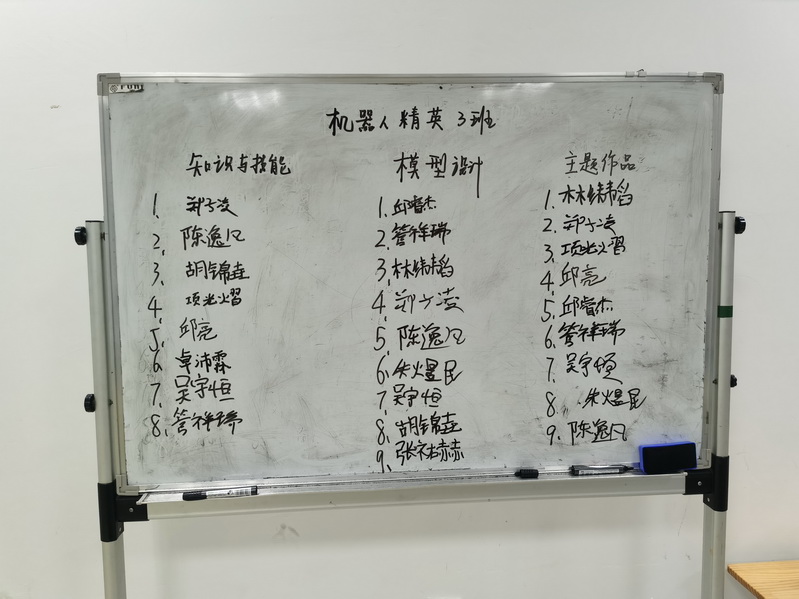 机器人精英3班
知识与技能
1、郑子凌
2、陈逸凡
3、胡锦垚
4、项光熠
5、邱亮
6、卓沛霖
7、吴宇恒
8、管祥瑞
模型设计
1、邱睿杰
2、管祥瑞
3、林纬韬
4、郑子凌
5、陈逸凡
6、朱煜民
7、吴宇恒
8、胡锦垚
9、张祐赫
主题作品
1、林纬韬
2、郑子凌
3、项光熠
4、邱亮
5、邱睿杰
6、管祥瑞
7、吴宇恒
8、朱煜民
9、陈逸凡